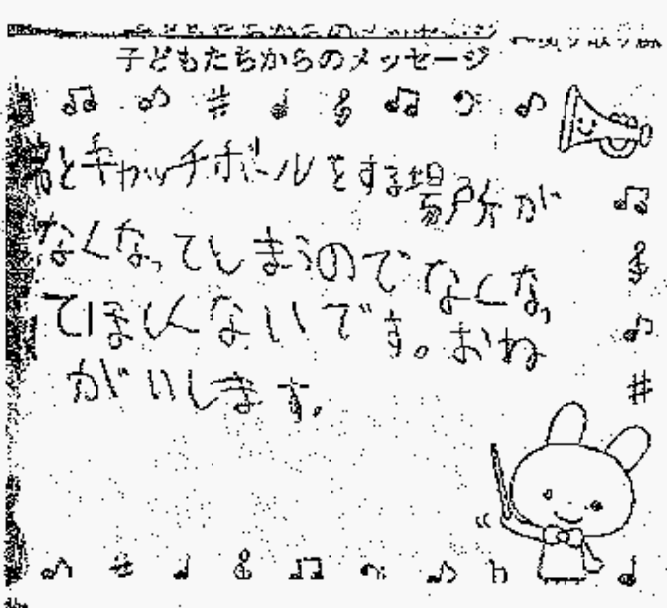 子どもたちからのメッセージ
とキャッチボールをする場所が
なくなってしまうのでなくなっ
てほしくないです。おね
がいします。